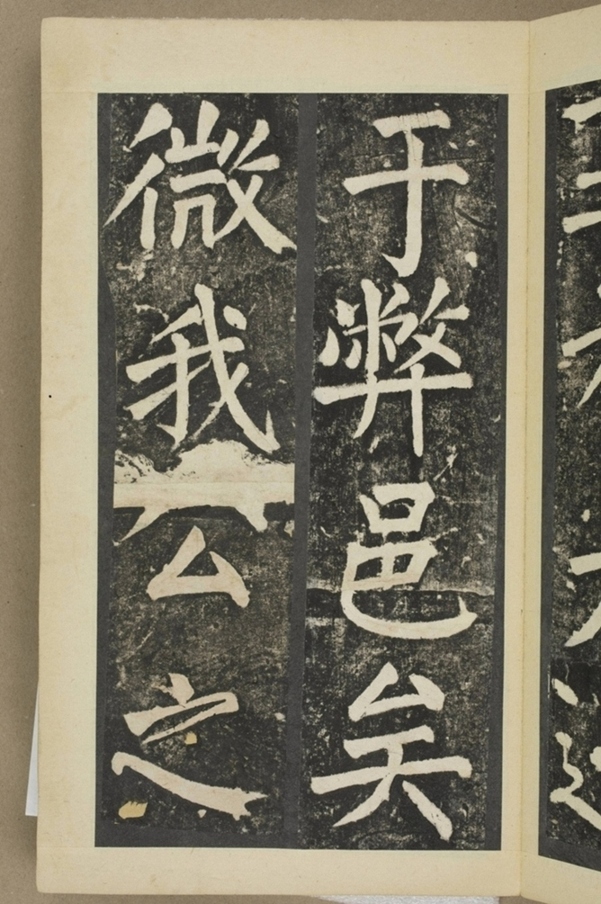 于弊邑矣
微我公之